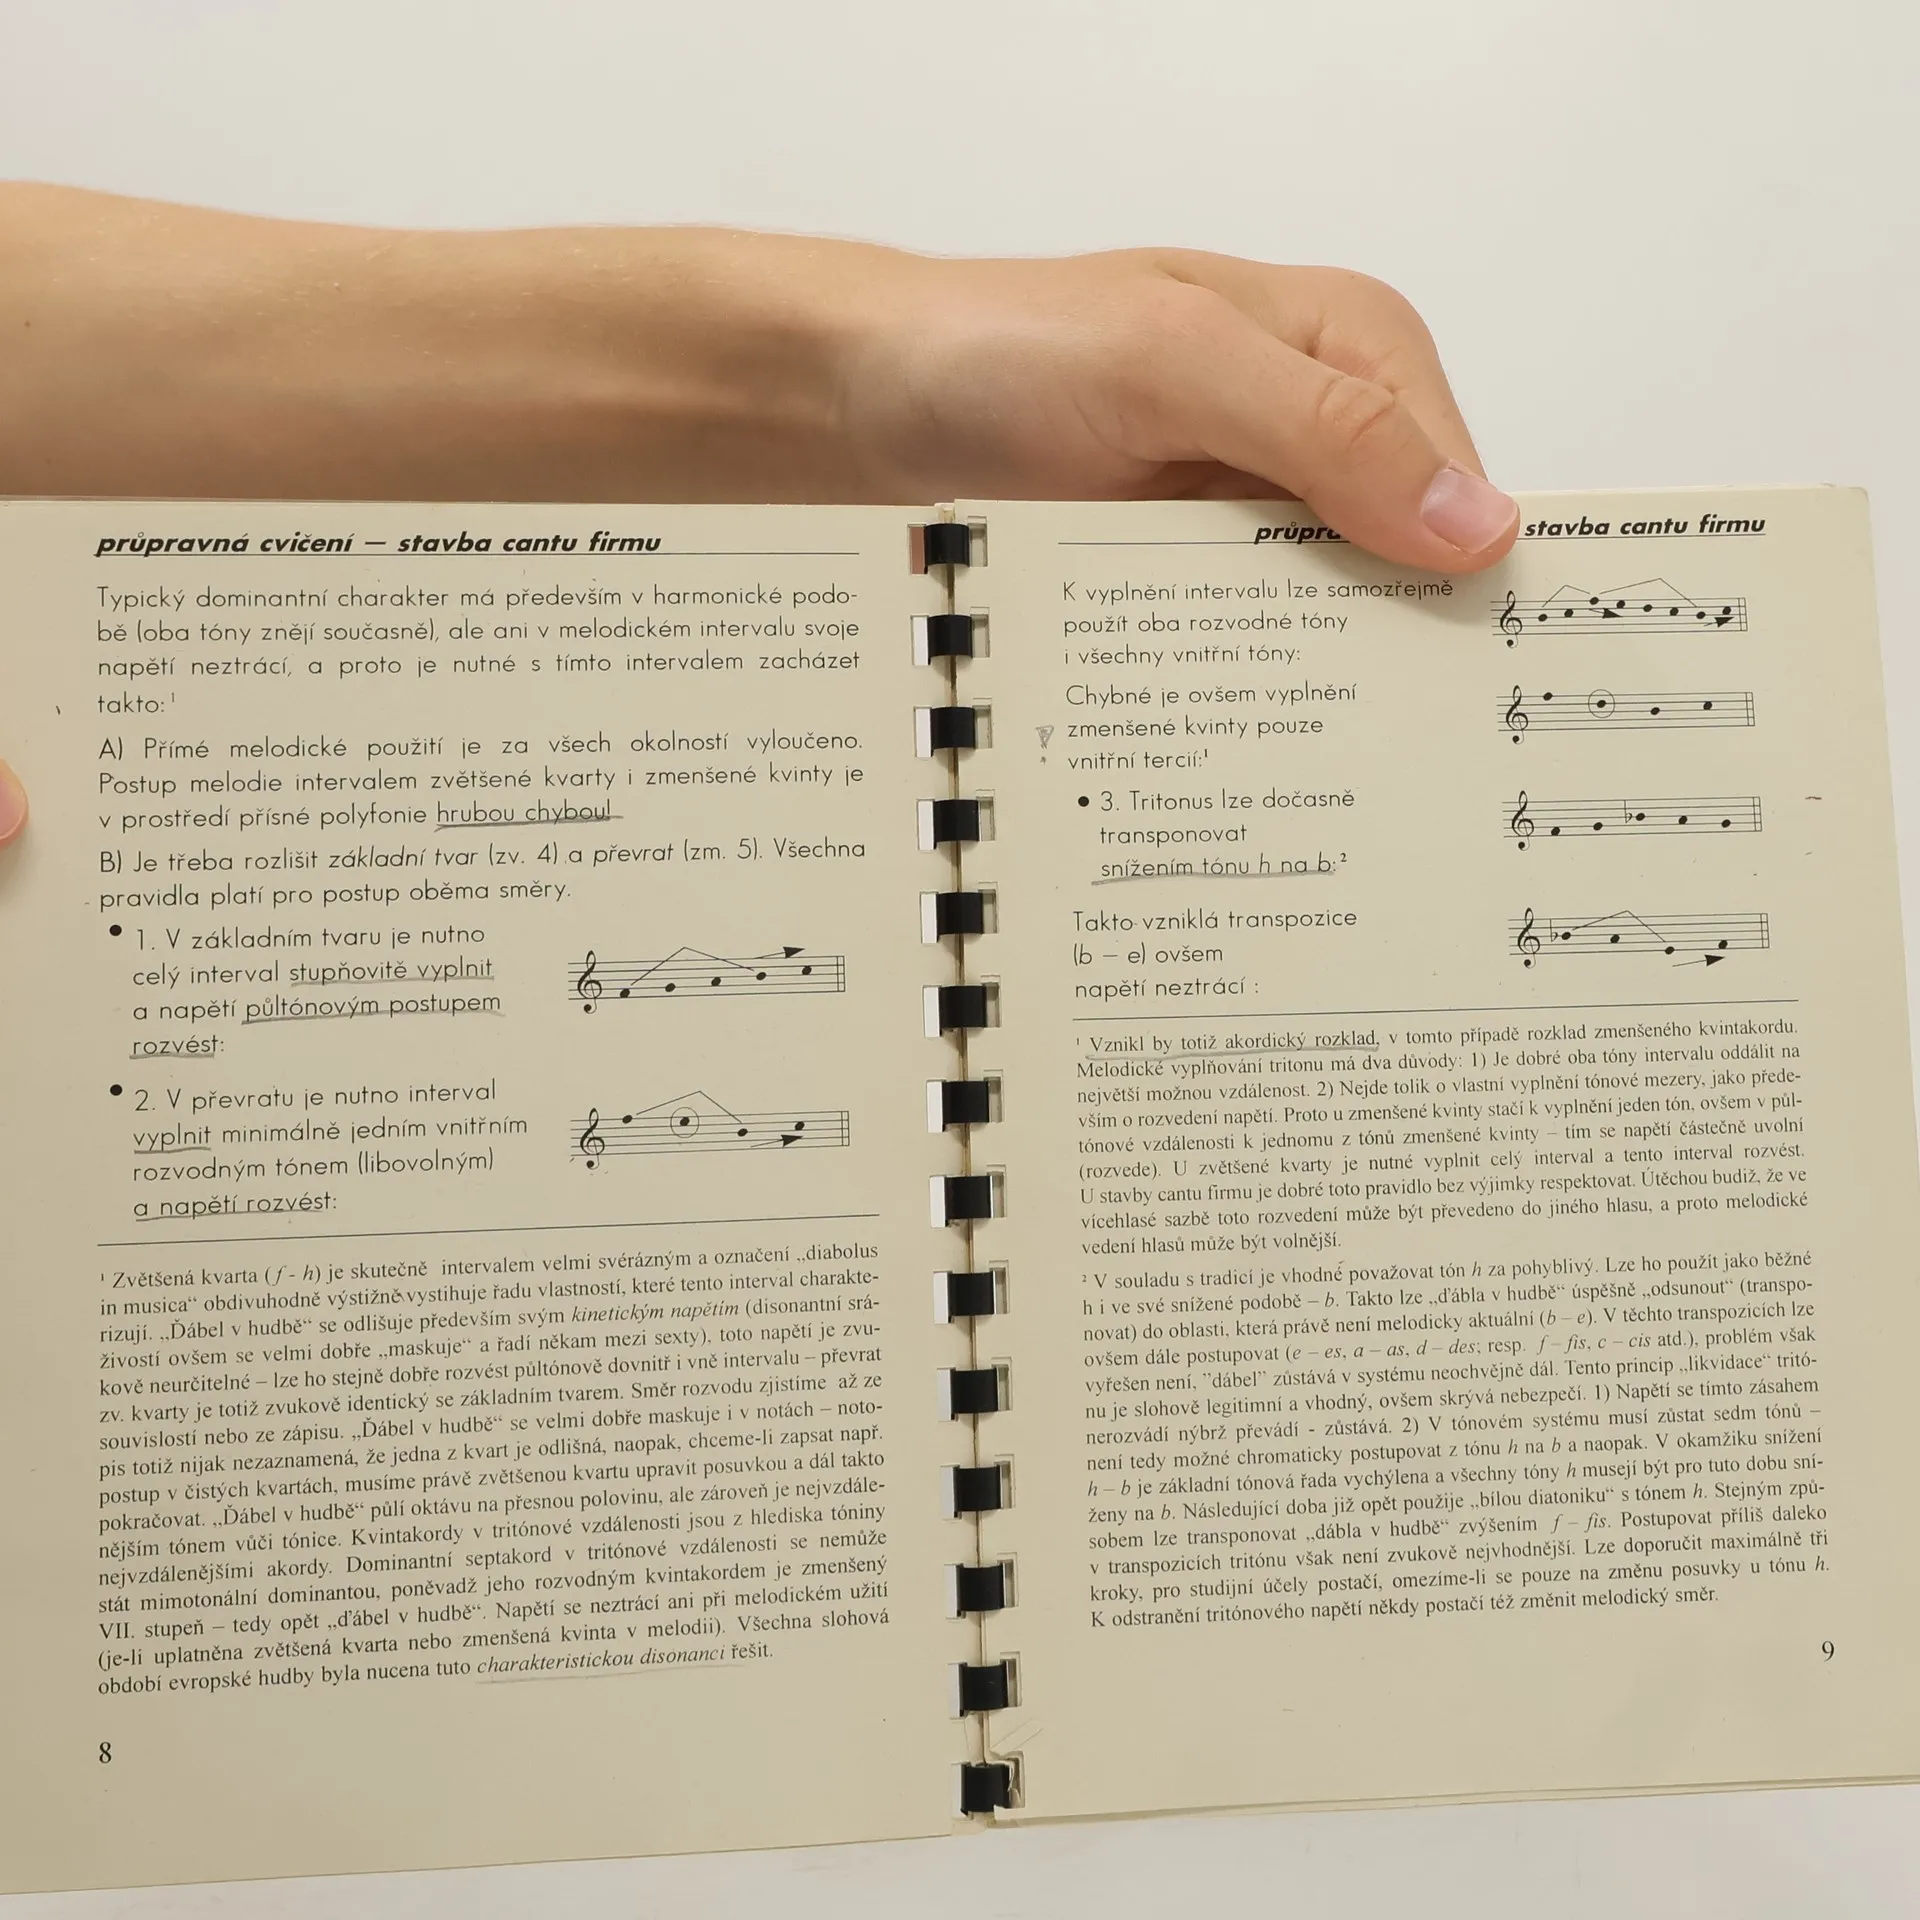 průpravná cvičení — stavba cantu firmu
Typický dominantní charakter má především v harmonické podo-
bě (oba tóny znějí současně), ale ani v melodickém intervalu svoje
napětí neztrácí, a proto je nutné s tímto intervalem zacházet
takto: ¹
A) Přímé melodické použití je za všech okolností vyloučeno.
Postup melodie intervalem zvětšené kvarty i zmenšené kvinty je
v prostředí přísné polyfonie hrubou chybou!
B) Je třeba rozlišit základní tvar (zv. 4) a převrat (zm. 5). Všechna
pravidla platí pro postup oběma směry.
• 1. V základním tvaru je nutno
celý interval stupňovitě vyplnit
a napětí půltónovým postupem
rozvést:
• 2. V převratu je nutno interval
vyplnit minimálně jedním vnitřním
rozvodným tónem (libovolným)
a napětí rozvést:
¹ Zvětšená kvarta (f - h) je skutečně intervalem velmi svérázným a označení „diabolus
in musica“ obdivuhodně výstižně vystihuje řadu vlastností, které tento interval charakte-
rizují. „Ďábel v hudbě“ se odlišuje především svým kinetickým napětím (disonantní srá-
živostí ovšem se velmi dobře „maskuje“ a řadí někam mezi sexty), toto napětí je zvu-
kově neurčitelné – lze ho stejně dobře rozvést půltónově dovnitř i vně intervalu – převrat
zv. kvarty je totiž zvukově identický se základním tvarem. Směr rozvodu zjistíme až ze
souvislostí nebo ze zápisu. „Ďábel v hudbě“ se velmi dobře maskuje i v notách – noto-
pis totiž nijak nezaznamená, že jedna z kvart je odlišná, naopak, chceme-li zapsat např.
postup v čistých kvartách, musíme právě zvětšenou kvartu upravit posuvkou a dál takto
pokračovat. „Ďábel v hudbě“ půlí oktávu na přesnou polovinu, ale zároveň je nejvzdále-
nějším tónem vůči tónice. Kvintakordy v tritónové vzdálenosti jsou z hlediska tóniny
nejvzdálenějšími akordy. Dominantní septakord v tritónové vzdálenosti se nemůže
stát mimotonální dominantou, poněvadž jeho rozvodným kvintakordem je zmenšený
VII. stupeň – tedy opět „ďábel v hudbě“. Napětí se neztrácí ani při melodickém užití
(je-li uplatněna zvětšená kvarta nebo zmenšená kvinta v melodii). Všechna slohová
období evropské hudby byla nucena tuto charakteristickou disonanci řešit.
8
stavba cantu firmu
K vyplnění intervalu lze samozřejmě
použít oba rozvodné tóny
i všechny vnitřní tóny:
Chybné je ovšem vyplnění
zmenšené kvinty pouze
vnitřní tercií:¹
• 3. Tritonus lze dočasně
transponovat
snížením tónu h na b:²
Takto vzniklá transpozice
(b – e) ovšem
napětí neztrácí :
¹ Vznikl by totiž akordický rozklad, v tomto případě rozklad zmenšeného kvintakordu.
Melodické vyplňování tritonu má dva důvody: 1) Je dobré oba tóny intervalu oddálit na
největší možnou vzdálenost. 2) Nejde tolik o vlastní vyplnění tónové mezery, jako přede-
vším o rozvedení napětí. Proto u zmenšené kvinty stačí k vyplnění jeden tón, ovšem v půl-
tónové vzdálenosti k jednomu z tónů zmenšené kvinty – tím se napětí částečně uvolní
(rozvede). U zvětšené kvarty je nutné vyplnit celý interval a tento interval rozvést.
U stavby cantu firmu je dobré toto pravidlo bez výjimky respektovat. Útěchou budiž, že ve
vícehlasé sazbě toto rozvedení může být převedeno do jiného hlasu, a proto melodické
vedení hlasů může být volnější.
² V souladu s tradicí je vhodné považovat tón h za pohyblivý. Lze ho použít jako běžné
h i ve své snížené podobě – b. Takto lze „ďábla v hudbě“ úspěšně „odsunout“ (transpo-
novat) do oblasti, která právě není melodicky aktuální (b – e). V těchto transpozicích lze
ovšem dále postupovat (e – es, a – as, d – des; resp. f – fis, c – cis atd.), problém však
vyřešen není, "ďábel" zůstává v systému neochvějně dál. Tento princip „likvidace“ tritó-
nu je slohově legitimní a vhodný, ovšem skrývá nebezpečí. 1) Napětí se tímto zásahem
nerozvádí nýbrž převádí - zůstává. 2) V tónovém systému musí zůstat sedm tónů –
není tedy možné chromaticky postupovat z tónu h na b a naopak. V okamžiku snížení
h – b je základní tónová řada vychýlena a všechny tóny h musejí být pro tuto dobu sní-
ženy na b. Následující doba již opět použije „bílou diatoniku“ s tónem h. Stejným způ-
sobem lze transponovat „ďábla v hudbě“ zvýšením f – fis. Postupovat příliš daleko
v transpozicích tritónu však není zvukově nejvhodnější. Lze doporučit maximálně tři
kroky, pro studijní účely postačí, omezíme-li se pouze na změnu posuvky u tónu h.
K odstranění tritónového napětí někdy postačí též změnit melodický směr.
9